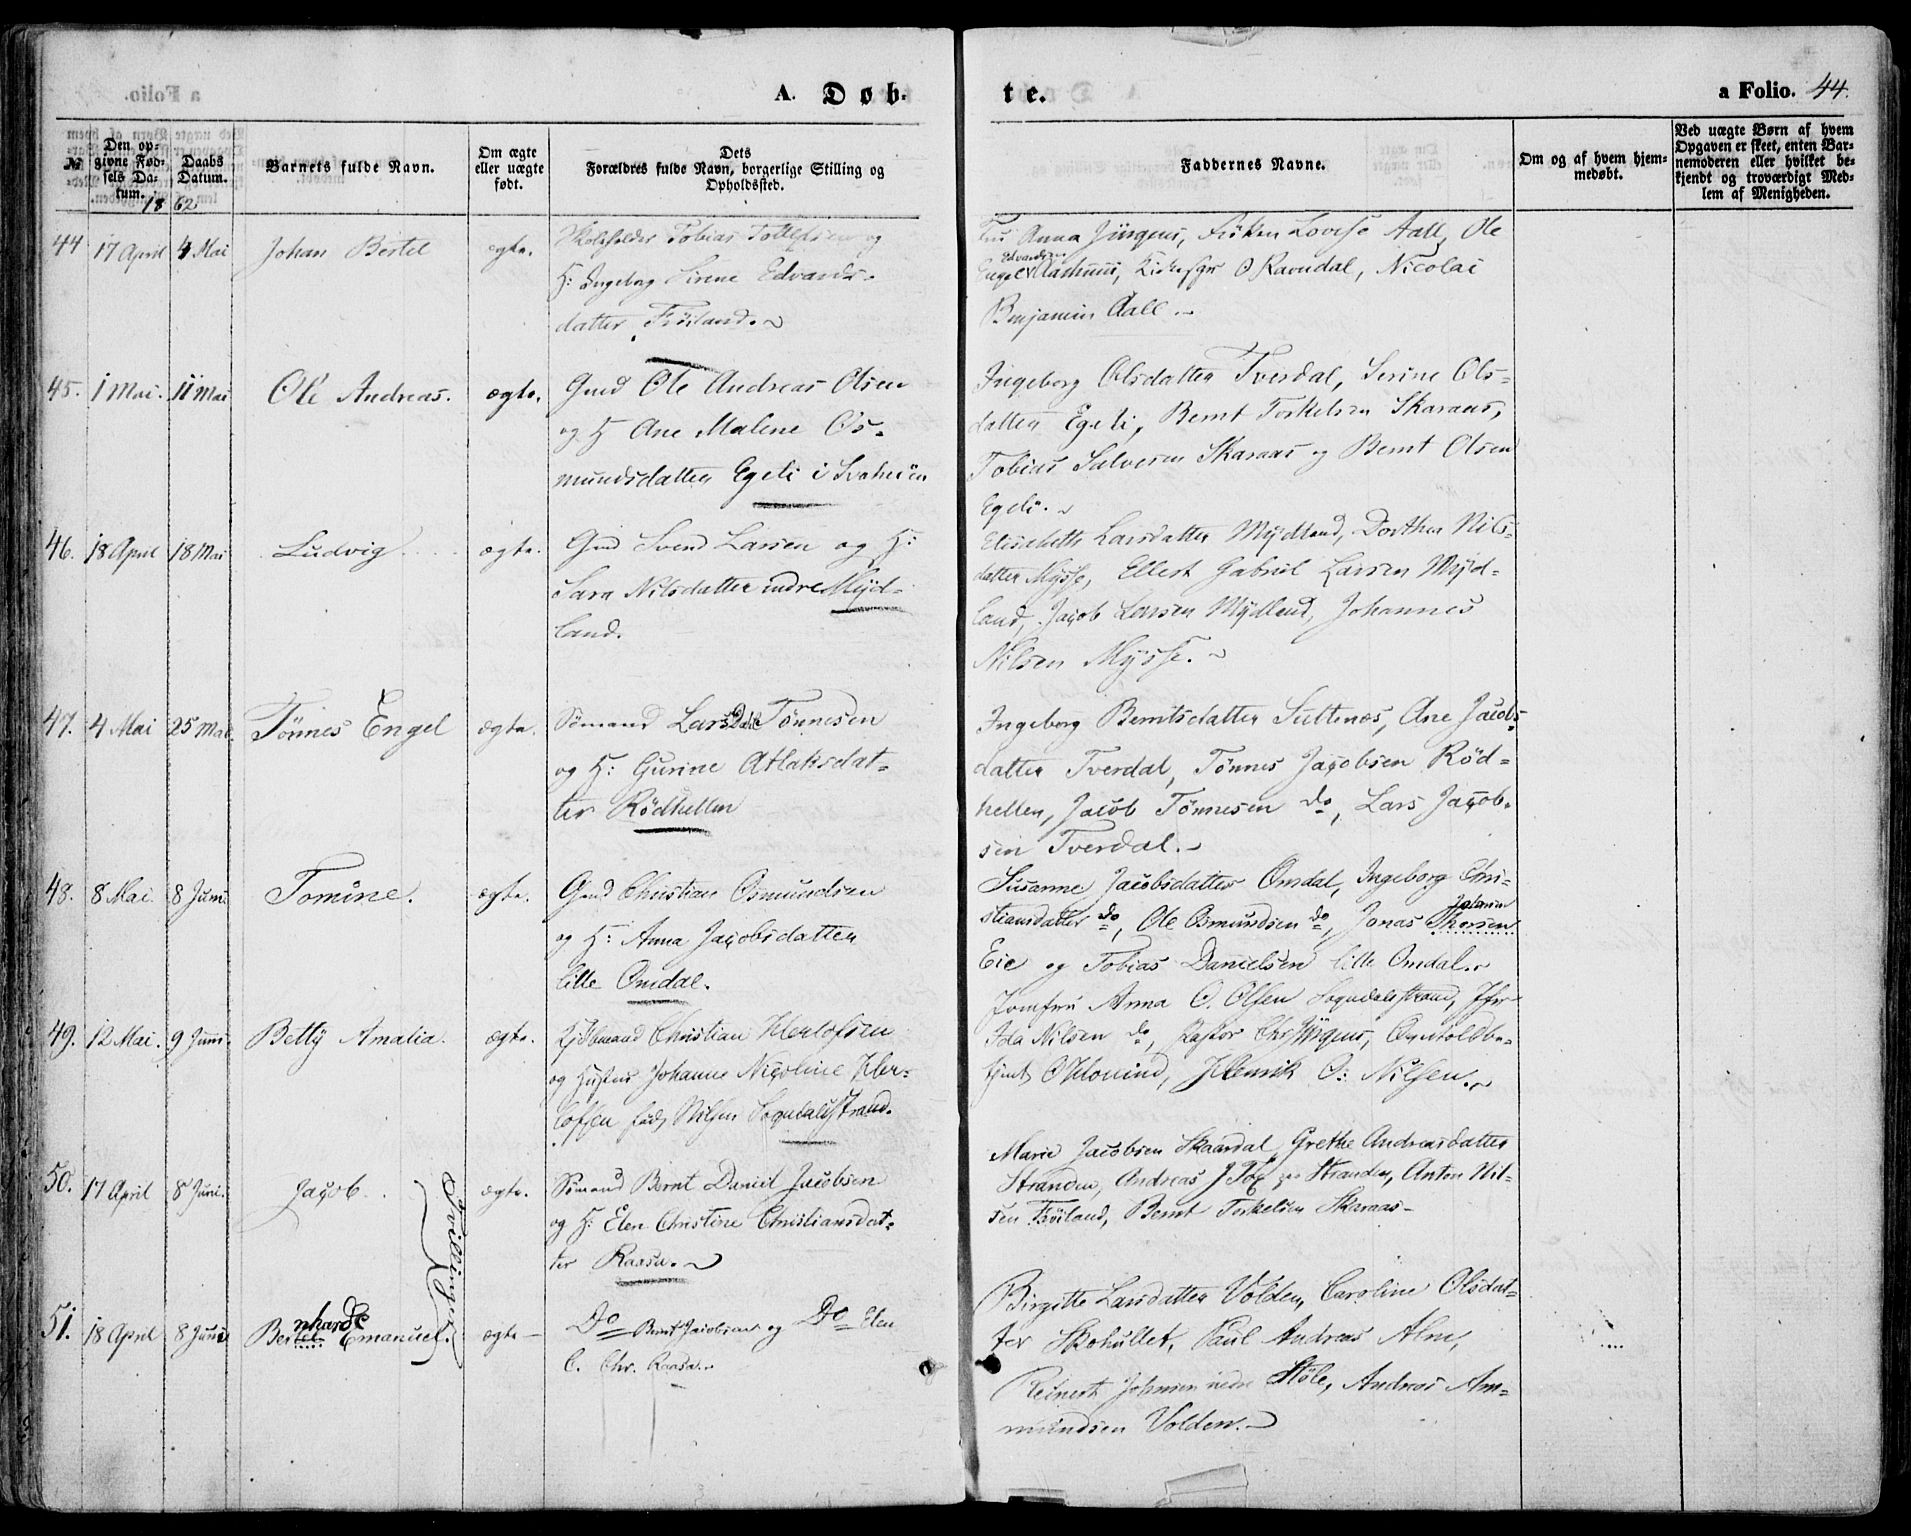 A. Døb-
te.
a Folio. 44.
№
Den opgivne Fødsels Datum.
Daabs Datum.
Barnets fulde Navn.
Om ægte eller uægte født.
Dets Forældres fulde Navn, borgerlige Stilling og Opholdssted.
Faddernes Navne.
Om og af hvem hjemmedøbt.
Ved uægte Børn af hvem Opgaven er skeet, enten Barnemoderen eller hvilket bekjendt og troværdigt Medlem af Menigheden.
1862
44 17 April 4 Mai Johan Bertel ægte.
Skoleholder Tobias Tollefsen og
H: Ingeborg Sirene Edvards-
datter Fröiland.
Anna Jürgens, Fröken Lovise Aall, Ole
Edvardsen
Rasmus, O Ravndal, Nicolai
Benjamin Aall.
45. 1 Mai. 11 Mai Ole Andreas. ægte.
Gmd Ole Andreas Olsen
og H Ane Malene Os-
mundsdatter Egeli i Svaheien
Ingeborg Olsdatter Tverdal, Serine Ols-
datter Egeli, Bernt Torkelsen Skaraas,
Tobias Salvesen Skaraas og Bernt Olsen
Egeli.
46. 18 April 18 Mai Ludvig ægte.
Gmd Svend Larsen og H:
Sara Nilsdatter indre Myd-
land.
Elisabeth Larsdatter Mydland, Dorthea Nils-
datter Mysse, Ellert Gabriel Larsen Myd-
land, Jacob Larsen Mydland, Johannes
Nilsen Mysse.
47. 4 Mai 25 Mai. Tönnes Engel ægte.
Sömand Lars Tönnesen
og H: Gurine Atlaksdat-
ter Rödhellen
Ingeborg Berntsdatter Ane Jacobs-
datter Tverdal, Tönnes Jacobsen Röd-
hellen, Jacob Tönnesen do, Lars Jacob-
sen Tverdal.
48. 8 Mai. 8 Juni Tomine. ægte.
Gmd Christian Osmundsen
og H: Anna Jacobsdatter
lille Omdal.
Susanne Jacobsdatter Omdal, Ingeborg Chri-
stiansdatter do, Ole Osmundsen do, Jonas Thorsen
Eie og Tobias Danielsen lille Omdal.
49. 12 Mai. 9 Juni. Betty Amalia. ægte.
Christian Herlofsen
og Hustru Johanne Nicoline Her-
lofsen föds Nilsen Sogndalsstrand.
Jomfru Anna O. Olsen Sogndalsstrand, Jfr
Ida Nilsen do, Pastor Chr Jürgens,
Henrik O: Nilsen.
50. 17 April 8 Juni. Jacob. ægte.
Tvillinger
Sömand Bernt Daniel Jacobsen
og H: Elen Christine Christiansdat-
ter Raasa.
Marie Jacobsen Skaardal, Grethe Andreasdatter
Stranden, Andreas J Stranden, Anton Nil-
sen Fröiland, Bernt Torkelsen Skaraas
51. 18 April 8 Juni Bertel Emanuel. ægte
nhard
Do Bernt Jacobsen og Do Elen
C. Chr. Raasa.
Birgitte Larsdatter Volden, Caroline Olsdat-
ter Skohullet, Paul Andreas Alm,
Reinert Johnsen nedre Stöle, Andreas Am-
mundsen Volden.